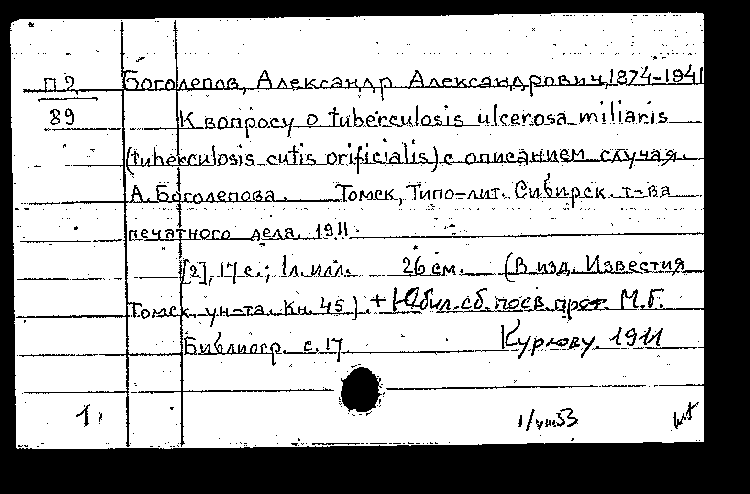 П2 Боголепов, Александр Александрович, 1874-1941
89 К вопросу о tuberculosis ulcerosa miliaris
(tuberculosis cutis orificialis) с описанием случая.
А. Боголепова. Томск, Типо-лит. Сибирск. т-ва
печатного дела, 1911.
[2], 17 с.; 1 л. илл. 26 см. (В изд. Известия
Томск. ун-та. Кн. 45). + Юбил. сб. посв. проф. М.Г.
Библиогр. с. 17 Курлову. 1911
1. 1/VIII53